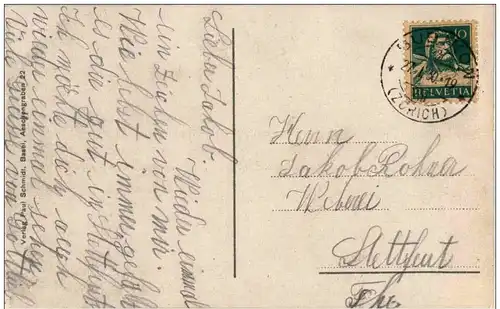 Lieber Jakob.
Wieder einmal
ein Zeichen von mir.
Wie lebst immer gefällt
es dir gut in Stettfurt
Ich möchte dich auch
wieder einmal sehen.
Viele Grüsse von
Verlag Paul Schmidt, Basel, Aeschengraben 22
10
HELVETIA
(ZÜRICH)
Herrn
Jakob Rohner
Weberei
Stettfurt
Thg.